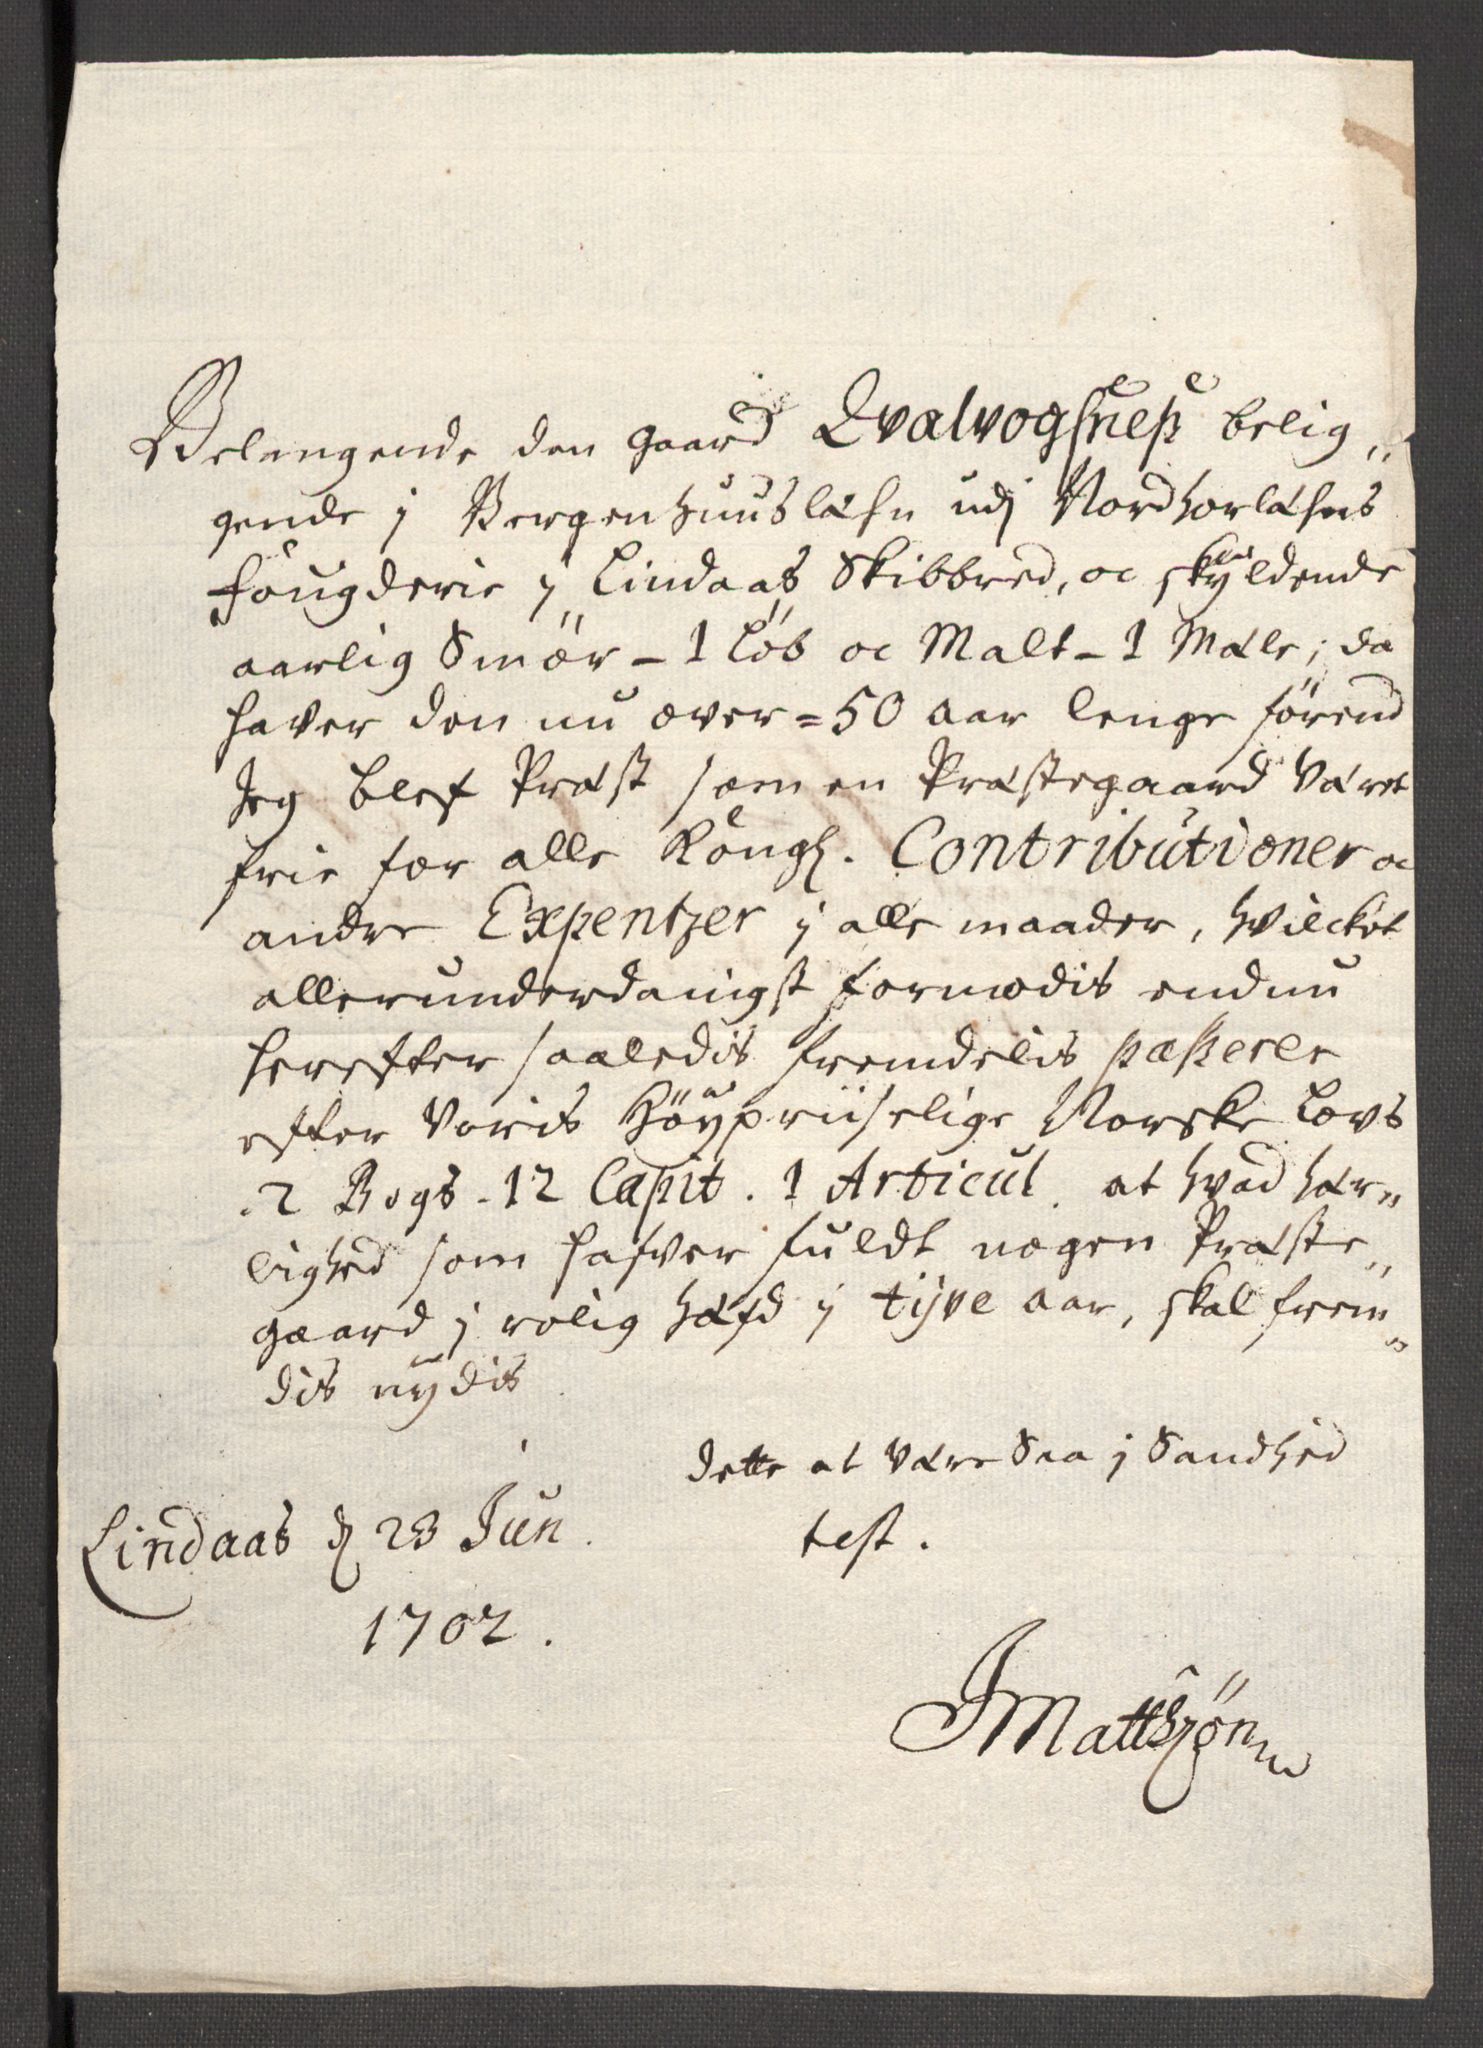 Belangende den gaard Qvalvogsneß belig„
gende j Bergenhuus læhn udj Nordhorlæhns
fougderie j Lindaas Skibbred, oc skÿldende
aarlig Smör – 1 Löb oc Malt – 1 Mæle; da
haver den nu over = 50 aar lenge förend
Jeg blef Præst som en Præstegaard været
frie for alle Kongl. Contributioner oc
andre Expentzer j alle maader, hvilcket
allerunderdanigst formodis endnu
herefter saaledis fremdelis passere
efter voris Höÿpriiselige Norske Lovs
2 Bogs - 12 Capit. 1 Articul. at hvad her„
lighed som hafver fuldt nogen Præste„
gaard j rolig hæfd j tijve aar, skal frem„
dis nÿdis
dette at være Saa j Sandhed
test.
Lindaas d 23 Jun.
1702.
JMattszön